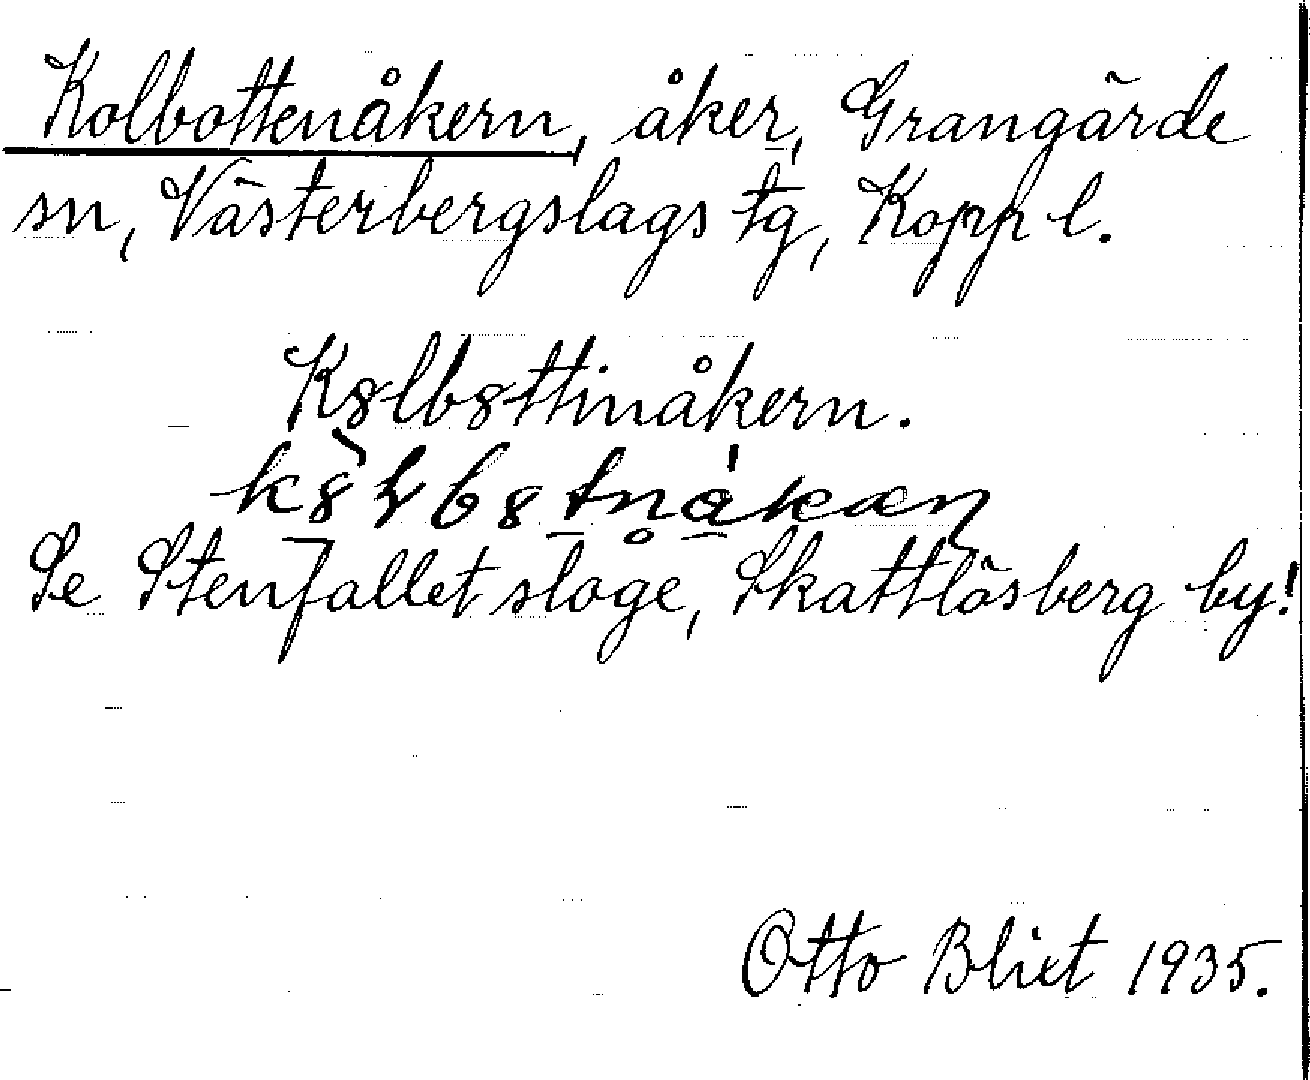 Kolbottenåkern, åker, Grangärde
sn, Västerbergslags tg, Kopp l.
K8lb8ttinåkern.
Se Stenfallet sloge, Skattlösberg by!
Otto Blixt 1935.